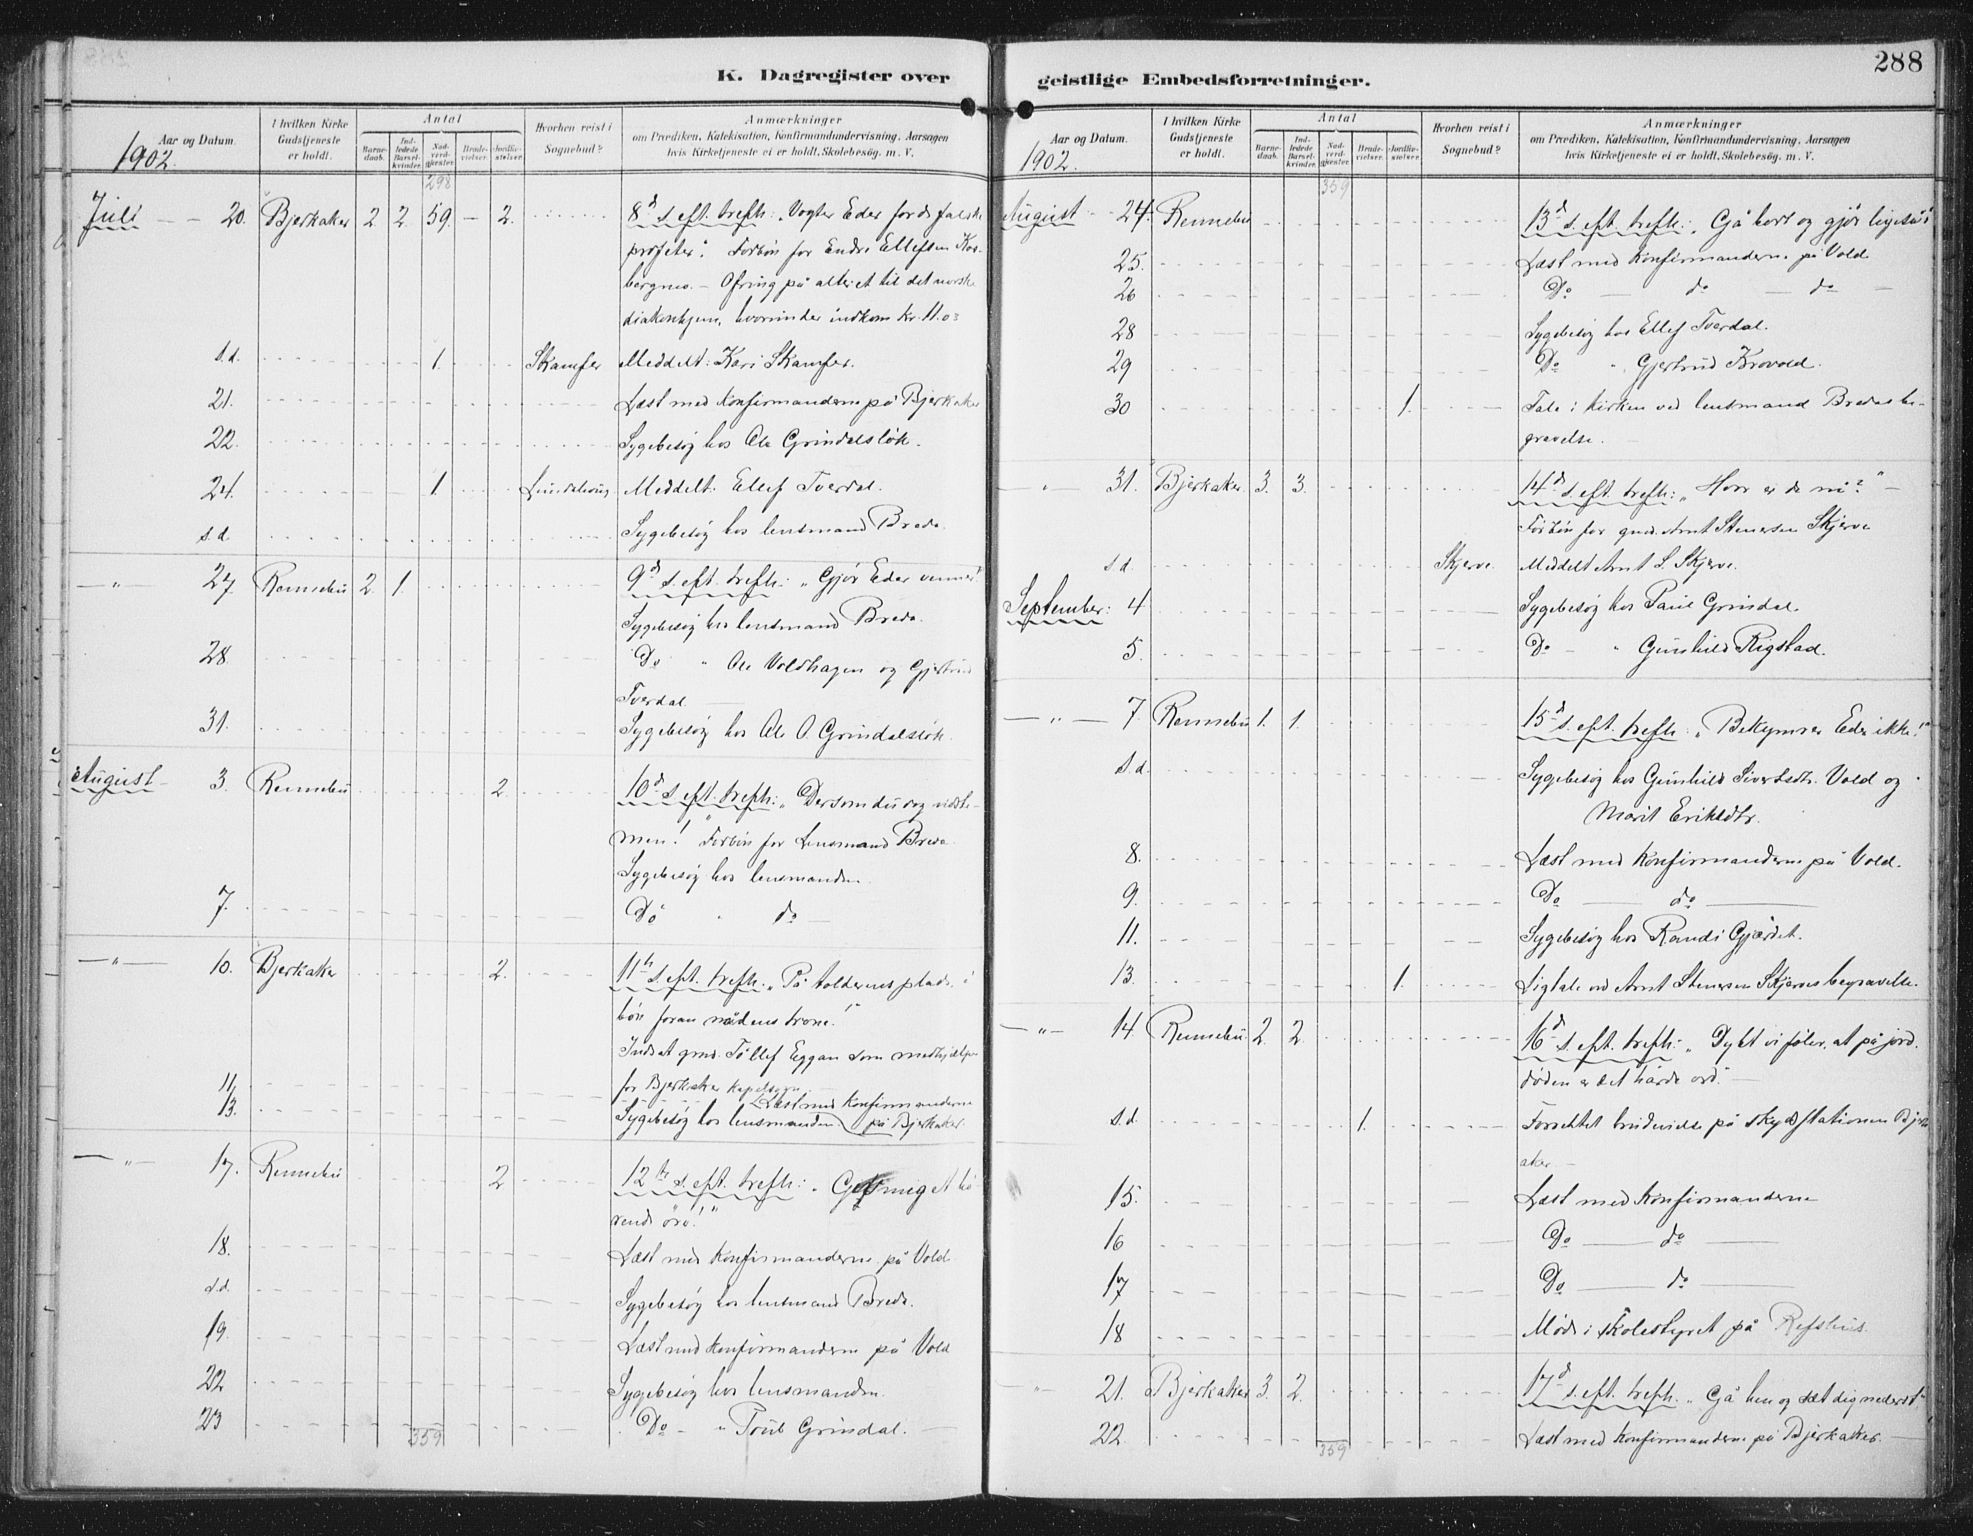 K. Dagregister over
Aar og Datum.
1902.
I hvilken Kirke Gudstjeneste er holdt.
Antal
Barnedaab.
Indledede Barselkvinder.
Nadverdgjester.
Brudevielser.
Jordfæstelser.
Hvorhen reist i Sognebud?
Anmærkninger
om Prædiken, Katekisation, Konfirmandundervisning, Aarsagen
hvis Kirketjeneste ei er holdt, Skolebesøg. m. V.
298
Juli 20. Bjerkaker 2. 2. 59. — 2. 8d s. eft. trefh.: "Vogter Eder for de falske
profeter." Forbøn for Endre Ellefsen
Ofring på alteret til det norske
diakonhjem, hvorunder indkom kr. 11.03
s.d. 1. Skamfer Meddelt: Kari Skamfer.
21. Læst med konfirmanderne på Bjerkaker
22. Sygebesøg hos Ole Grindalsløk.
24. 1 Meddelt. Ellef Tverdal.
s.d Sygebesøg hos lensmand Brede.
— " 27. Rennebu 2. 1. 9d s. eft. trefh.: "Gjør Eder venner!
Sygebesøg hos lensmand Brede.
28. Do " Ole Voldhagen og Gjertrud
Tverdal.
31. Sygebesøg hos Ole O. Grindalsløk.
August 3. Rennebu 2. 10d s. eft. trefh.: "Dersom du dog vidste —
men!" Forbøn for Lensmand Brede.
Sygebesøg hos lensmanden.
7. Do " do —
— " — 10. Bjerkaker 2. 11te s. eft. trefh. "På tolderens plads i
bøn foran nådens trone!"
Indsat gmd. Tollef Eggan som medhjælper
11. for Bjerkaker kapelsogn.
Læst med konfirmanderne
13. Sygebesøg hos lensmanden på Bjerkaker.
— " — 17. Rennebu 2 12te s. eft. trefh.: "Gif mig et hø-
rende øre!"
18. Læst med konfirmanderne på Vold
s.d. Sygebesøg hos lensmand Brede.
19. Læst med konfirmanderne på Vold
22 Sygebesøg hos lensmanden.
23 Do — " Grindal. —
359
geistlige Embedsforretninger.
288
Aar og Datum.
1902.
I hvilken Kirke Gudstjeneste er holdt.
Antal
Barnedaab.
Indledede Barselkvinder.
Nadverdgjester.
Brudevielser.
Jordfæstelser.
Hvorhen reist i Sognebud?
Anmærkninger
om Prædiken, Katekisation, Konfirmandundervisning, Aarsagen
hvis Kirketjeneste ei er holdt, Skolebesøg. m. V.
359
August 24. Rennebu 13d s. eft. trefh.: "Gå bort og gjør ligeså!"
25. Læst med konfirmanderne på Vold
26 Do — do — do —
28 Sygebesøg hos Ellef Tverdal.
29 Do " Gjertrud Krovold.
30 1. Tale i kirken ved lensmand Bredes be-
gravelse.
" 31. Bjerkaker. 3. 3. 14d s. eft. trefh.: "Hvor er de ni?" —
Forbøn for gmd. Arnt Stenersen Skjerve
s.d. Skjerve. Meddelt Arnt S. Skjerve.
September: 4 Sygebesøg hos Paul Grindal.
5. Do — " Gunhild Rigstad.
— " — 7. Rennebu 1. 1. 15d s. eft. trefh.: "Bekymrer Eder ikke!"
s.d. Sygebesøg hos Gunhild Sivertsdtr. Vold og
Marit Eriksdtr.
8. Læst med konfirmanderne på Vold.
9. Do — do —
11. Sygebesøg hos Randi Gjærdet.
13. 1. Ligtale ved Arnt Stenersen Skjerves begravelse.
— " — 14 Rennebu 2. 2. 16d s. eft. trefh.: "Dybt vi føler, at på jord
døden er det hårde ord". —
s.d. 1. Forrettet brudevielse på skydsstationen Bjerk-
aker. —
15. Læst med konfirmanderne
16 Do — do —
17 Do — do —
18 Møde i skolestyret på Refshus.
— " 21. Bjerkaker 3. 2. 17d s. eft. trefh. "Gå hen og sæt dig nederst!"
22. Læst med konfirmanderne på Bjerkaker. —
359